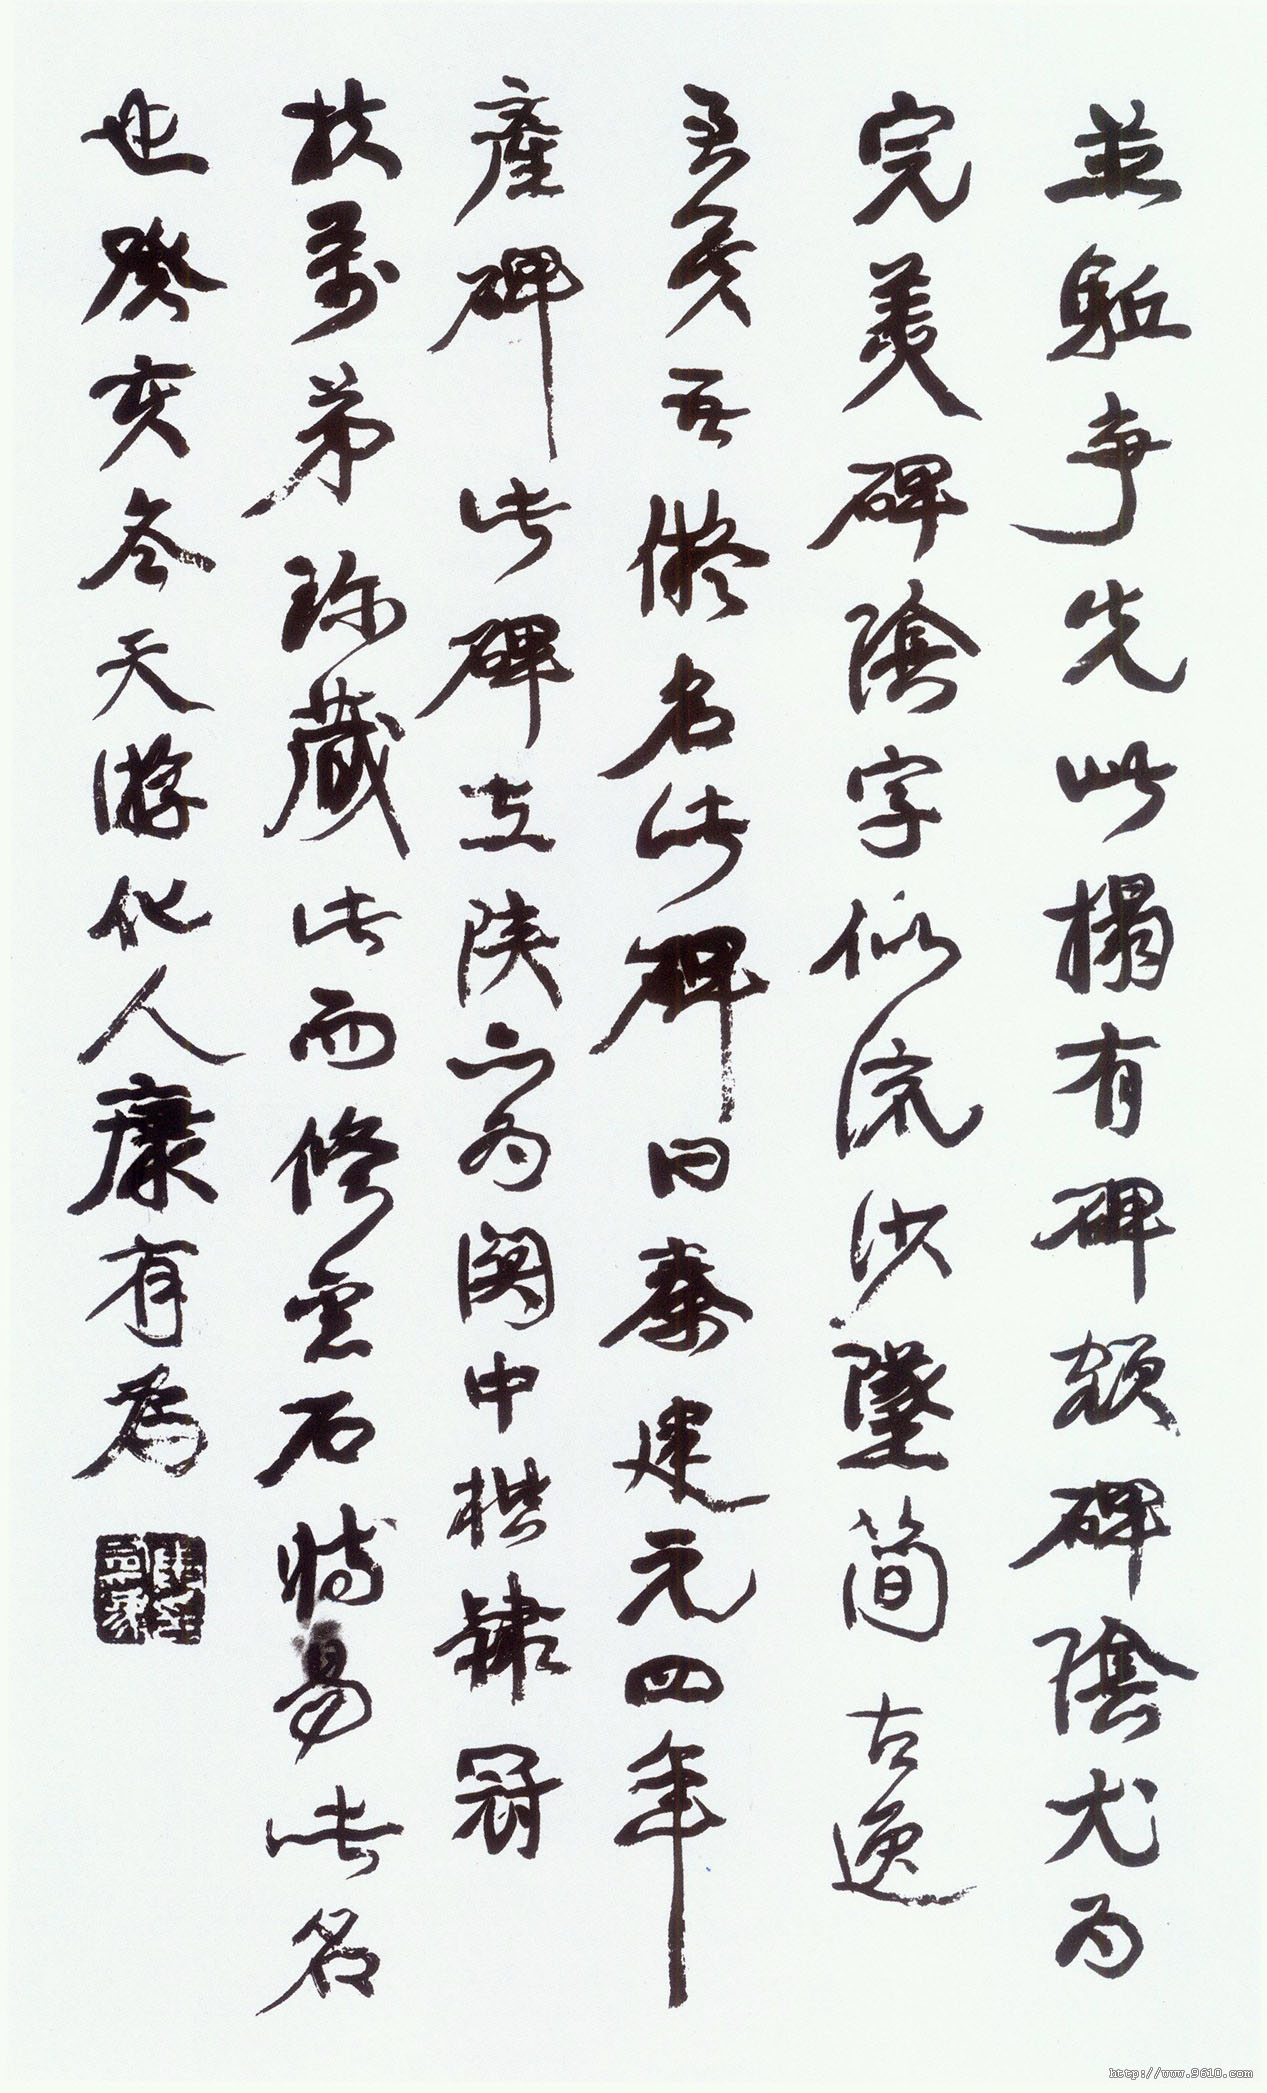 並駈争先此搨有碑額碑陰尤为
完美碑陰字似流沙墜简古逸
至矣吾儗名此碑曰秦建元四年
產碑此碑在陝亦为関中楷隸冠
扶萬弟珍藏此而修石特易此名
也癸亥冬天游化人康有為
http://www.9610.com